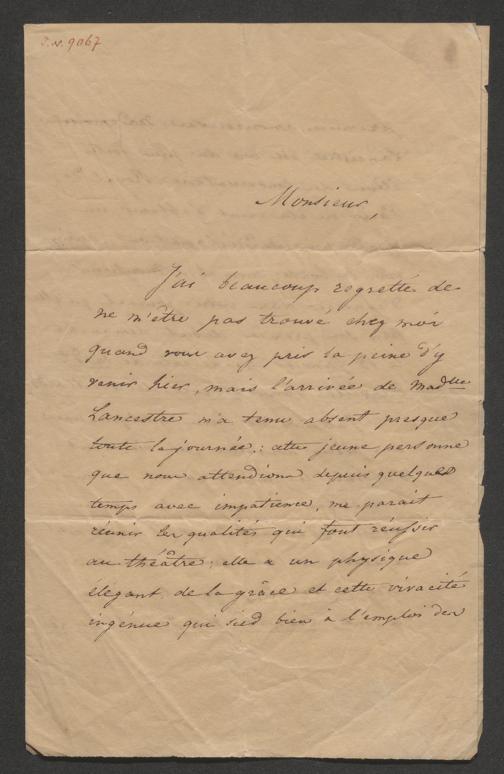 J.N. 9067
Monsieur,
J'ai beaucoup regretté de
ne m'être pas trouvé chez moi
quand vous avez pris la peine d'y
venir hier, mais l'arrivée de Madlle
Lancestre m'a tenu absent presque
toute la journée; cette jeune personne
que nous attendions depuis quelques
temps avec impatience, me parait
réunir les qualités qui font réussir
au théâtre; elle a un physique
élégant de la grâce et cette vivacité
ingénue qui sied bien à l'emploi des